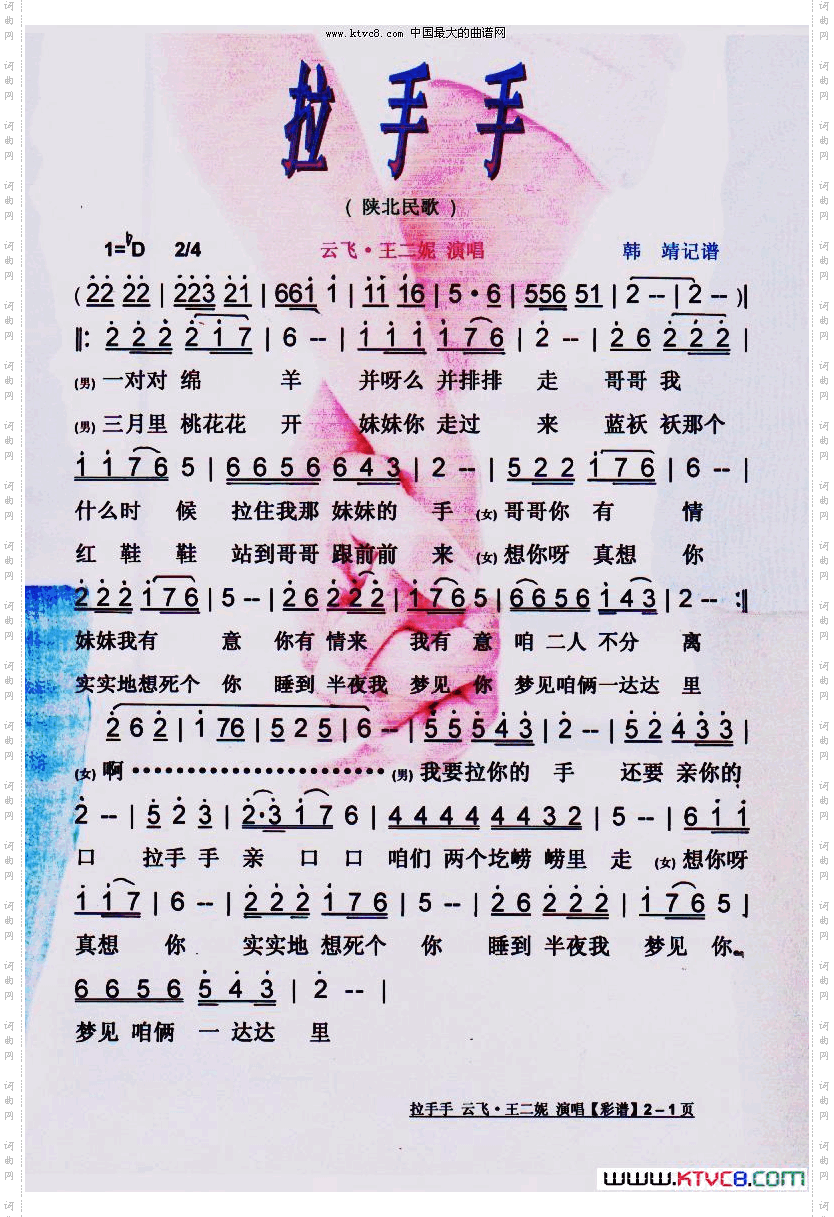 www.ktvc8.com 中国最大的曲谱网
拉手手
( 陕北民歌 )
1=♭D 2/4 云飞·王二妮 演唱 韩 靖记谱
( 2̇2̇ 2̇2̇ | 2̇2̇3̇ 2̇1̇ | 661̇ 1̇ | 1̇1̇ 1̇6 | 5·6 | 556 51 | 2 -- | 2 -- )|
‖: 2̇ 2̇ 2̇ 2̇ 1̇ 7 | 6 -- | 1̇ 1̇ 1̇ 1̇ 7 6 | 2 -- | 2 6 2̇ 2̇ 2̇ |
(男) 一对对 绵 羊 并呀么 并排排 走 哥哥 我
(男) 三月里 桃花花 开 妹妹你 走过 来 蓝袄 袄那个
1̇ 1̇ 7 6 5 | 6 6 5 6 6 4 3 | 2 -- | 5 2 2 1̇ 7 6 | 6 -- |
什么时 候 拉住我那 妹妹的 手 (女) 哥哥你 有 情
红 鞋 鞋 站到哥哥 跟前前 来 (女) 想你呀 真想 你
2̇ 2̇ 2̇ 1̇ 7 6 | 5 -- | 2 6 2̇ 2̇ 2̇ | 1̇ 7 6 5 | 6 6 5 6 1̇ 4 3 | 2 -- :‖
妹妹我有 意 你有 情来 我有 意 咱 二人 不分 离
实实地想死个 你 睡到 半夜我 梦见 你 梦见咱俩一达达 里
2̇ 6 2̇ | 1̇ 76 | 5 2 5 | 6 -- | 5 5 5 4 3 | 2 -- | 5 2 4 3 3 |
(女) 啊························ (男) 我要拉你的 手 还要 亲你的
2 -- | 5 2 3 | 2·3 1 7 6 | 4 4 4 4 4 4 3 2 | 5 -- | 6 1̇ 1̇
口 拉手 手 亲 口 口 咱们 两个圪崂 崂里 走 (女) 想你呀
1̇ 1̇ 7 | 6 -- | 2̇ 2̇ 2̇ 1̇ 7 6 | 5 -- | 2̇ 6 2̇ 2̇ 2̇ | 1̇ 7 6 5 |
真想 你 实实地 想死个 你 睡到 半夜我 梦见 你
6 6 5 6 5 4 3 | 2 -- |
梦见 咱俩 一 达达 里
拉手手 云飞·王二妮 演唱【彩谱】2－1页
www.KTVC8.com